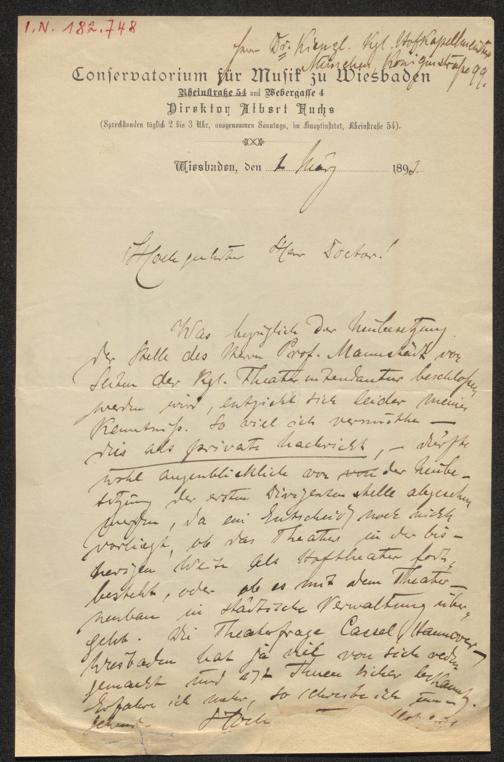 I.N. 182.748
Herrn Dr. Kienzl. Kgl. Hofkapellmeister
München, Königinstraße 99.
Conservatorium für Musik zu Wiesbaden
Rheinstraße 54 und Webergasse 4
Direktor Albert Fuchs
(Sprechstunden täglich 2 bis 3 Uhr, ausgenommen Sonntags, im Hauptinstitut, Rheinstraße 54).
Wiesbaden, den 1 März 1893.
Hochgeehrter Herr Doctor!
Was bezüglich der Neubesetzung
der Stelle des Herrn Prof. Mannstädt von
Seiten der Kgl. Theaterintendantur beschlossen
werden wird, entzieht sich leider meiner
Kenntniß. So viel ich vermuthe –
dies als private Nachricht, – dürfte
wohl augenblicklich von von der Neube-
setzung der ersten Dirigentenstelle abgesehen
werden, da ein Entscheid noch nicht
vorliegt, ob das Theater in der bis-
herigen Weise als Hoftheater fort-
besteht, oder ob es mit dem Theater-
neubau in städtische Verwaltung über-
geht. Die Theaterfrage Cassel/Hannover–
Wiesbaden hat ja viel von sich reden
gemacht und ist Ihnen sicher bekannt.
Erfahre ich mehr, so schreibe ich Ihnen
Hoch